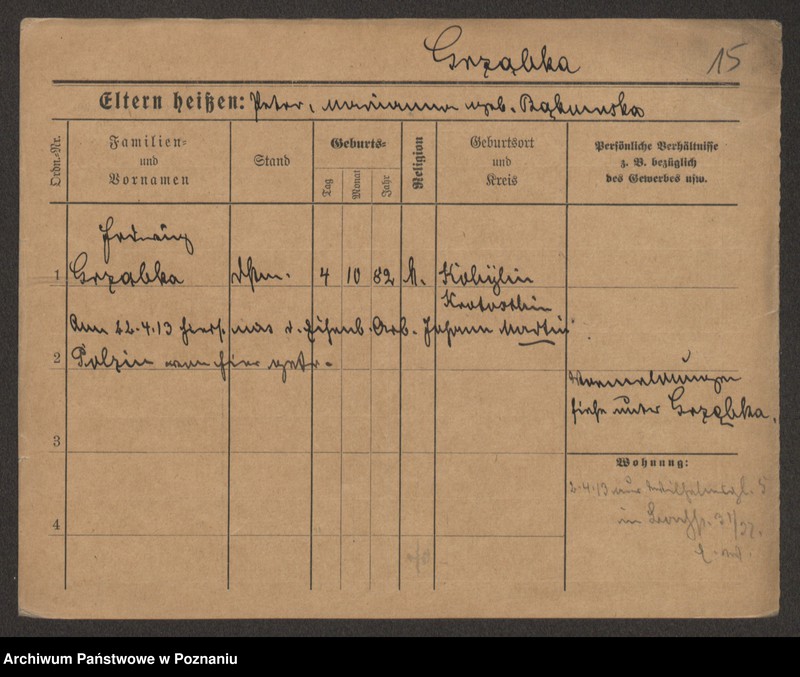 Grząbka 15
Eltern heißen: Peter, Marianna geb. Bąkowska
Ordn.-Nr.
Familien-
und
Vornamen
Stand
Geburts-
Tag
Monat
Jahr
Religion
Geburtsort
und
Kreis
Persönliche Verhältnisse
z. B. bezüglich
des Gewerbes usw.
1 Grząbka 4 10 82 k. Kobylin
Krotoschin
Am 22.4.13 hiers. mit d. Eisenb. Arb. Johann Martin
2 Polzin von hier getr.
siehe unter Grząbka.
3
Wohnung:
2.4.13
4
Archiwum Państwowe w Poznaniu